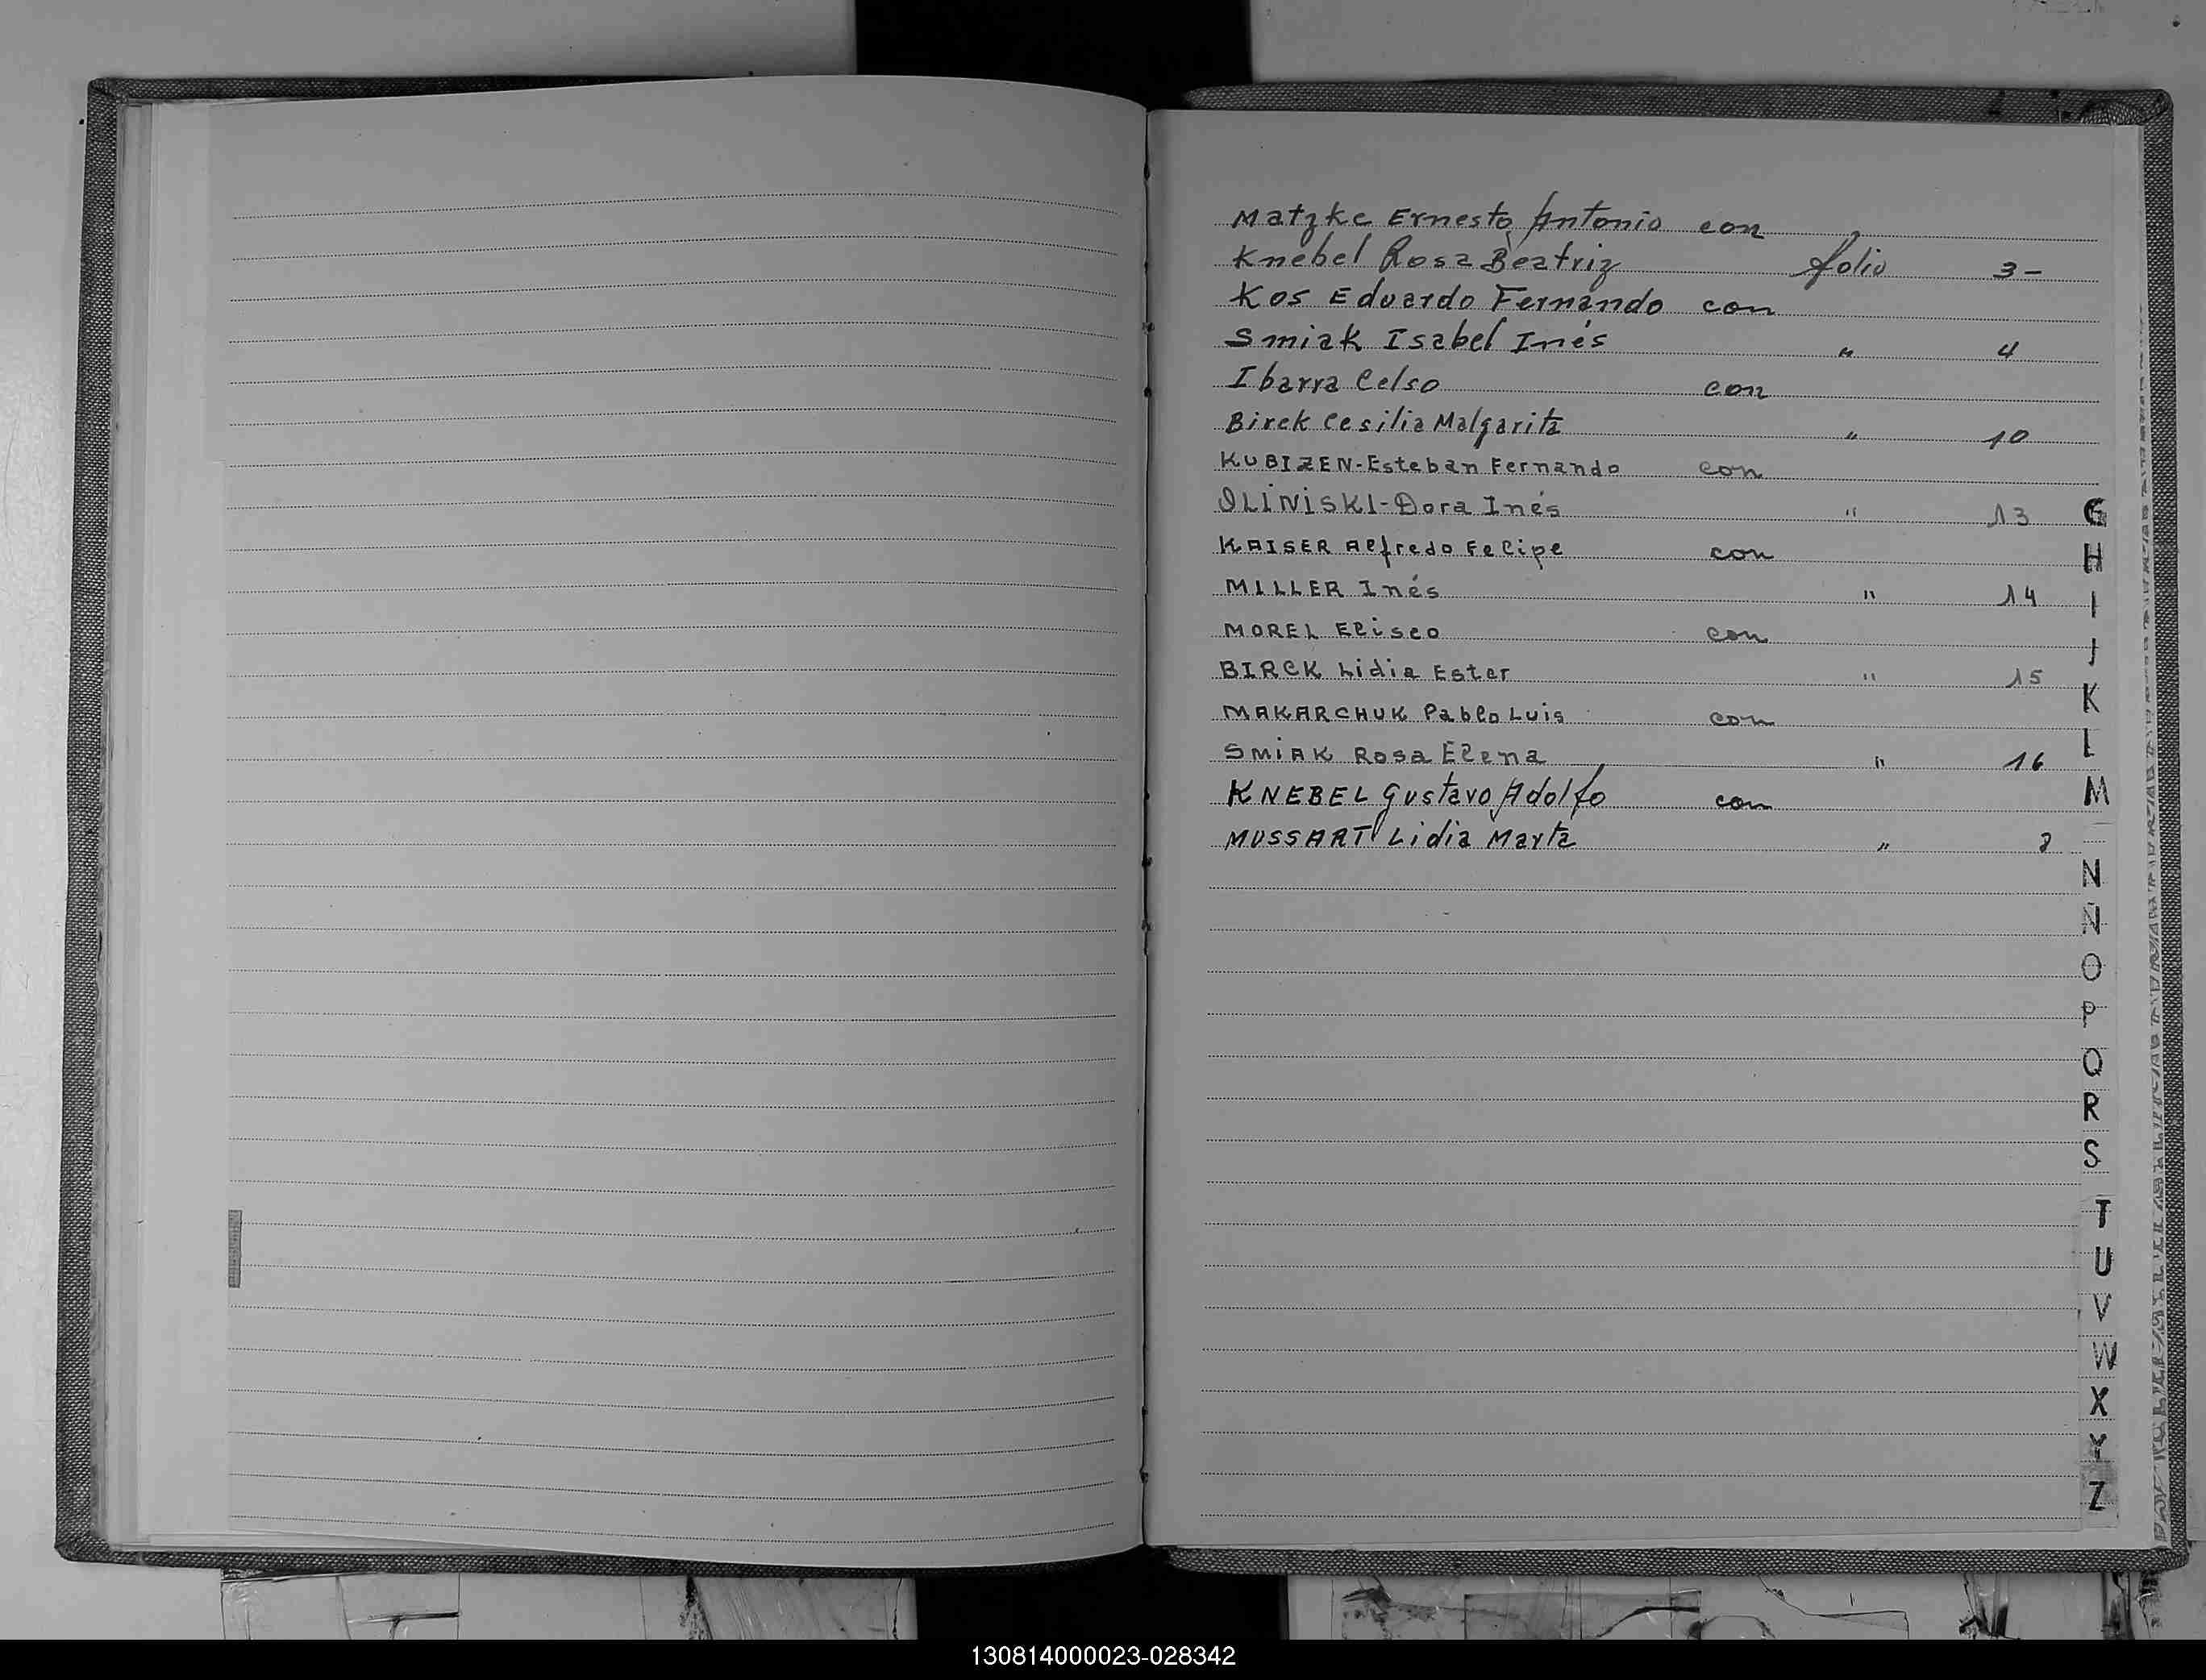 Matzke Ernesto Antonio con
Knebel Rosa Beatriz folio 3-
Kos Eduardo Fernando con
Smiak Isabel Inés " 4
Ibarra Celso con
Birck Cesilia Malgarita " 10
KUBIZEN-Esteban Fernando con
OLINISKI-Dora Inés " 13
KAISER Alfredo Felipe con
MILLER Inés " 14
MOREL Eliseo con
BIRCK Lidia Ester " 15
MAKARCHUK Pablo Luis con
SMIAK Rosa Elena " 16
KNEBEL Gustavo Adolfo con
MUSSART Lidia Marta "
G
H
I
J
K
L
M
N
Ñ
O
P
Q
R
S
T
U
V
W
X
Y
Z
130814000023-028342